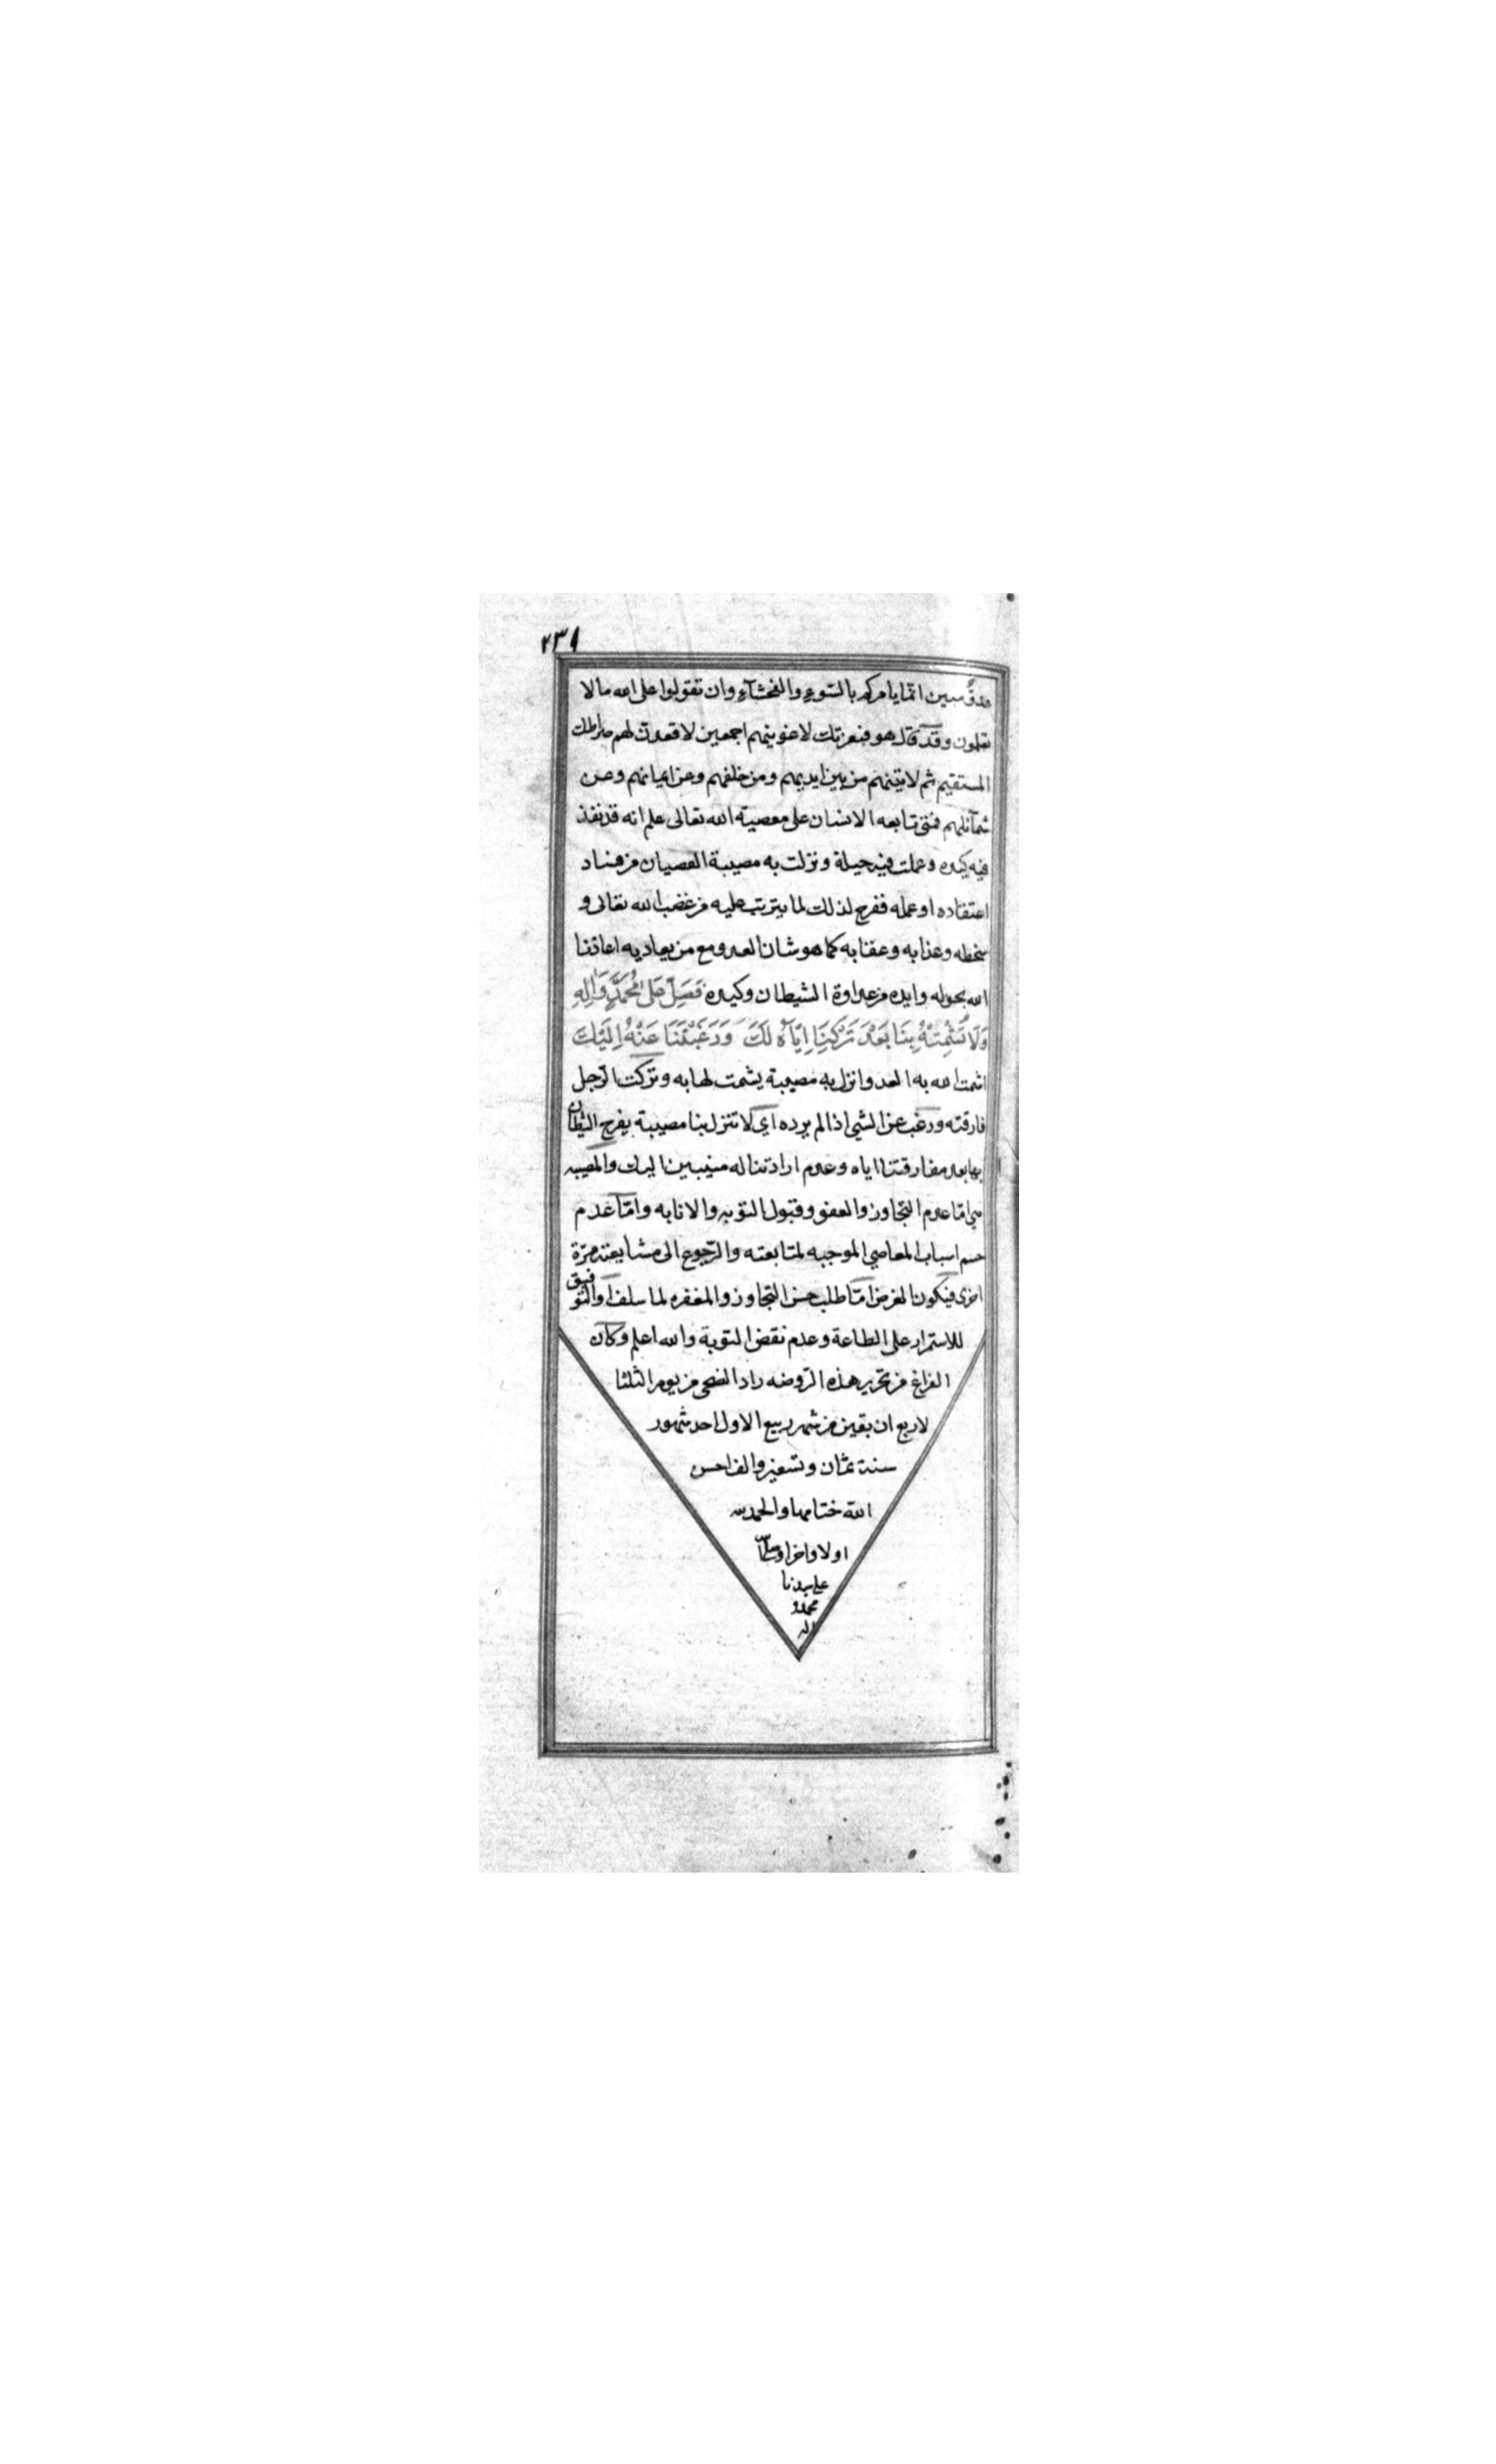 ٢٣١
عدوّ مبين انّما يامركم بالسّوء والفحشآء وان تقولوا على الله مالا
تعلمون وقد قال هو فبعزتك لاغوينهم اجمعين لاقعدنّ لهم صراطك
المستقيم ثم لاتينهم من بين ايديهم ومن خلفهم وعن ايمانهم وعن
شمآئلهم فمتى تابعه الانسان على معصية الله تعالى علم انه قد نفذ
فيه كيده وعملت فيه حيلة ونزلت به مصيبة العصيان من فساد
اعتقاده او عمله ففرح لذلك لما يترتب عليه من غضب الله تعالى و
سخطه وعذابه وعقابه كما هو شان العدو مع من يعاديه اعاذنا
الله بحوله وايده من عداوة الشيطان وكيده فَصَلِّ عَلٰى مُحَمَّدٍ وَاٰلِهِ
وَلَا تُشْمِتْهُ بِنَا بَعْدَ تَرْكِنَا اِيّاَهُ لَكَ وَرَغْبَتِنَا عَنْهُ اِلَيْكَ
اشمت الله به العدو انزل به مصيبة يشمت لها به وتركت الرّجل
فارقته ورغب عن الشي اذا لم يرده اي لا تنزل بنا مصيبة يفرح الشيطان
بها بعد مفارقتنا اياه وعدم ارادتنا له منيبين اليك والمصيبه
هي امّا عدم التجاوز والعفو وقبول التوبه والانابه وامّا عدم
حسم اسباب المعاصي الموجبه لمتابعته والرّجوع الى مشايعته مرّة
اخرى فيكون الغرض امّا طلب حسن التجاوز والمغفره لما سلف او التوفيق
للاستمرار على الطاعة وعدم نقض التوبة والله اعلم وكان
الفراغ من تحرير هذه الرّوضه راد الضحى من يوم الثلثا
لاربع ان بقين من شهر ربيع الاول احد شهور
سنة ثمان وتسعين والف احسن
الله ختامها والحمد لله
اولا واخرا وصلّى الله
على سيدنا
محمد و
اله